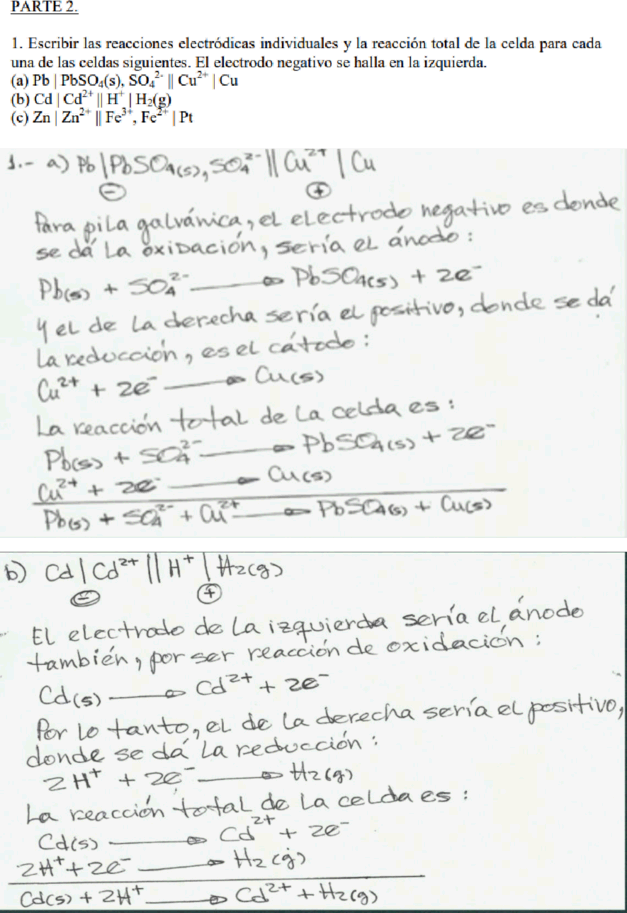 PARTE 2.
1. Escribir las reacciones electródicas individuales y la reacción total de la celda para cada
una de las celdas siguientes. El electrodo negativo se halla en la izquierda.
(a) Pb | PbSO₄(s), SO₄²⁻ || Cu²⁺ | Cu
(b) Cd | Cd²⁺ || H⁺ | H₂(g)
(c) Zn | Zn²⁺ || Fe³⁺, Fe²⁺ | Pt
1.- a) Pb | PbSO₄(s), SO₄²⁻ || Cu²⁺ | Cu
⊖ ⊕
Para pila galvánica, el electrodo negativo es donde
se dá la oxidación, sería el ánodo:
Pb(s) + SO₄²⁻ → PbSO₄(s) + 2e⁻
y el de la derecha sería el positivo, donde se dá
la reducción, es el cátodo:
Cu²⁺ + 2e⁻ → Cu(s)
La reacción total de la celda es:
Pb(s) + SO₄²⁻ → PbSO₄(s) + 2e⁻
Cu²⁺ + 2e⁻ → Cu(s)
Pb(s) + SO₄²⁻ + Cu²⁺ → PbSO₄(s) + Cu(s)
b) Cd | Cd²⁺ || H⁺ | H₂(g)
⊖ ⊕
El electrodo de la izquierda sería el ánodo
también, por ser reacción de oxidación:
Cd(s) → Cd²⁺ + 2e⁻
Por lo tanto, el de la derecha sería el positivo,
donde se dá la reducción:
2H⁺ + 2e⁻ → H₂(g)
La reacción total de la celda es:
Cd(s) → Cd²⁺ + 2e⁻
2H⁺ + 2e⁻ → H₂(g)
Cd(s) + 2H⁺ → Cd²⁺ + H₂(g)